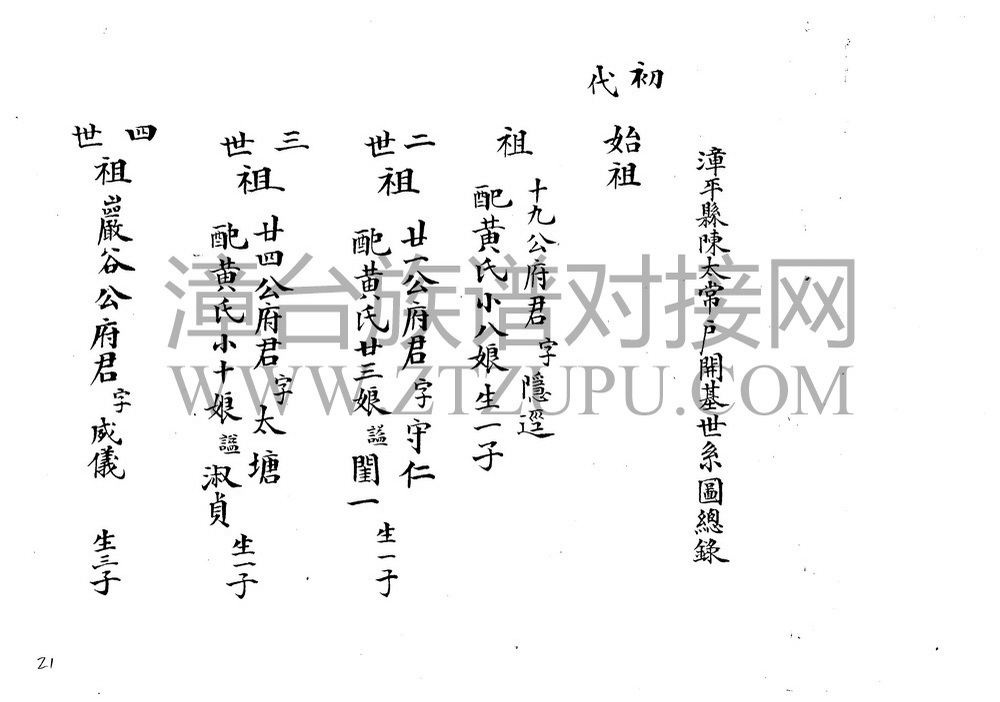 漳平縣陳太常户開基世系圖總錄
初代
始祖
祖
十九公府君 字隱逕
配黃氏小八娘生一子
二世
祖
廿一公府君 字守仁
配黃氏廿三娘 謚閨一 生一子
三世
祖
廿四公府君 字太塘
配黃氏小十娘 謚淑貞 生一子
四世
祖
巖谷公府君 字威儀 生三子
21
漳台族谱对接网
WWW.ZTZUPU.COM